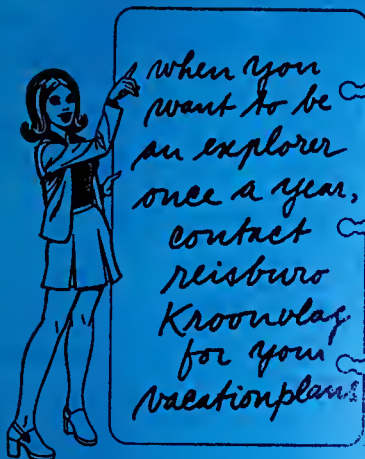 when you
want to be
an explorer
once a year,
contact
reisburo
Kroonvlag
for your
vacationplans